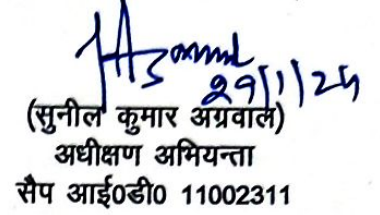 29/1/24
(सुनील कुमार अग्रवाल)
अधीक्षण अभियन्ता
सैप आई0डी0 11002311